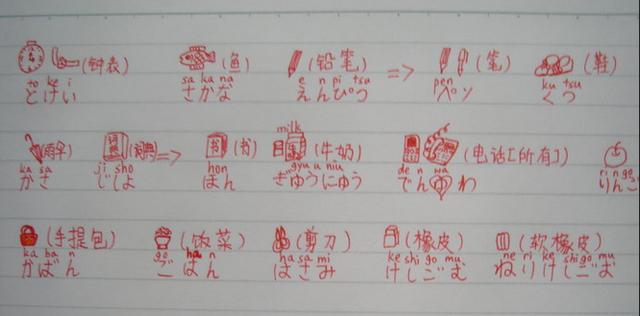 (钟表) (鱼) (铅笔) => (笔) (鞋)
to ke i sa ka na e n pi tsu pen ku tsu
とけい さかな えんぴつ ペン くつ
milk
(雨伞) (词典) => (书) (牛奶) (电话[所有])
ka sa ji sho hon gyu u niu de n wa ri n go
かさ じしょ ほん ぎゅうにゅう でんわ りんご
(手提包) (饭菜) (剪刀) (橡皮) (软橡皮)
ka ba n go ha n ha sa mi ke shi go mu ne ri ke shi go mu
かばん ごはん はさみ けしごむ ねりけしごむ